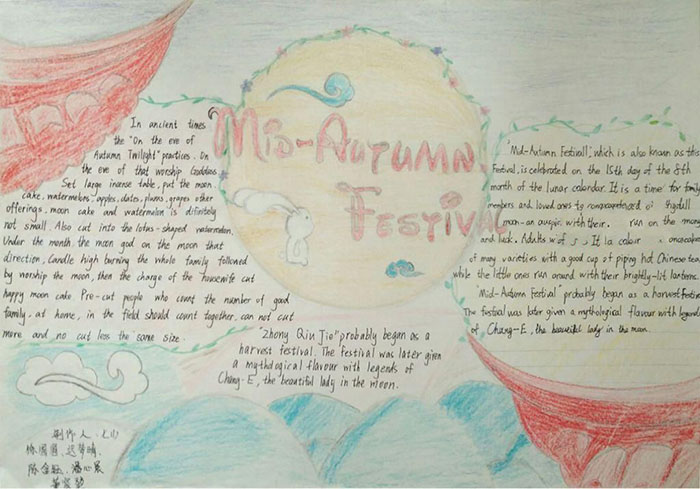 MID-AUTUMN
FESTIVAL
In ancient times
the "On the eve of
Autumn Twilight" practices. On
the eve of that worship Goddess.
Set large incense table, put the moon
cake, watermelons, apples, dates, plums, grapes other
offerings, moon cake and watermelon is difinitely
not small. Also cut into the lotus-shaped watermelon.
Under the month the moon god on the moon that
direction, Candle high burning the whole family followed
by worship the moon, then the charge of the housewife cut
happy moon cake. Pre-cut people who count the number of good
family, at home, in the field should count together, can not cut
more and no cut less the same size.
"Zhong Qiu Jie" probably began as a
harvest festival. The festival was later given
a mythological flavour with legends of
Chang-E, the beautiful lady in the moon.
"Mid-Autumn Festivall", which is also known as this
Festival, is celebrated on the 15th day of the 8th
month of the lunar calendar. It is a time for family
members and loved ones to
moon-an with their. run on the
and luck. Adults It la
of many varieties with a good cup of piping hot Chinese tea
while the little ones run around with their brightly-lit lanterns.
"Mid-Autumn Festival" probably began as a harvest festival
The festival was later given a mythological flavour with legends
of Chang-E, the beautiful lady in the moon.
制作人: